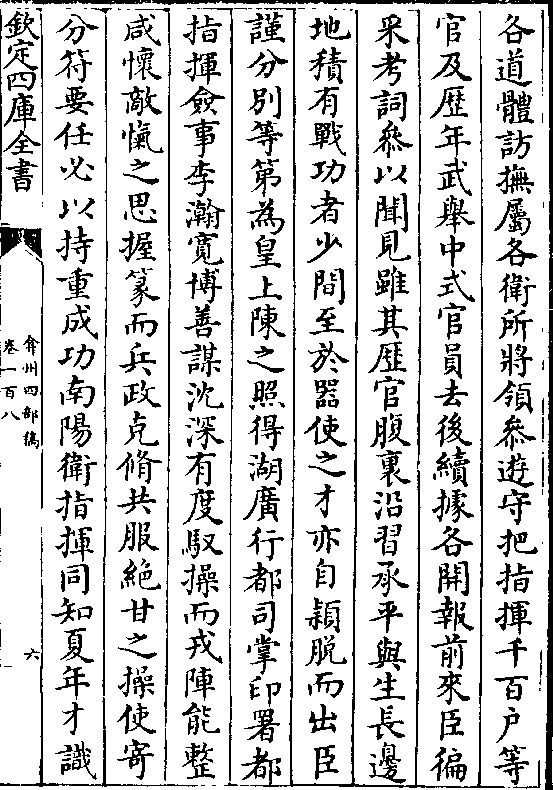 各道體訪撫屬各衛所將領參遊守把指揮千百户等
官及歴年武舉中式官員去後續據各開報前來臣徧
采考詞參以聞見雖其歴官腹裏沿習承平與生長邊
地積有戰功者少間至於器使之才亦自穎脱而出臣
謹分别等第為皇上陳之照得湖廣行都司掌印署都
指揮僉事李瀚寛博善謀沈深有度馭操而戎陣能整
咸懷敵愾之思握篆而兵政克脩共服絶甘之操使寄
分符要任必以持重成功南陽衛指揮同知夏年才識
欽定四庫全書
弇州四部稿
卷一百八
六